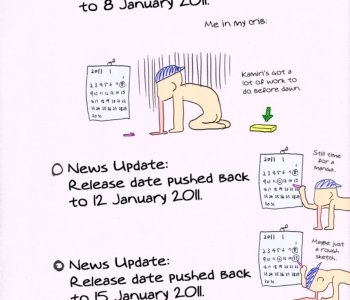 to 8 January 2011.
Me in my crib:
2011 1
2 3 4 5 6 7 8
Kamiri's got a
lot of work to
do before dawn.
News Update:
Release date pushed back
to 12 January 2011.
2011 1
Still time
for a
manga.
News Update:
Release date pushed back
to 15 January 2011.
2011 1
Maybe just
a rough
sketch.